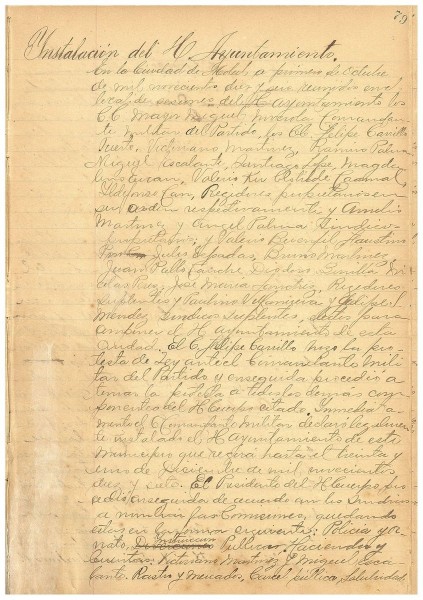 79
Instalación del H. Ayuntamiento.
En la Ciudad de Motul, a primero de Octubre
de mil novecientos diez y seis reunidos en el
local de sesiones del H. Ayuntamiento los
CC. Mayor Miguel Comandan-
te militar del Partido, los CC. Felipe Carrillo
Puerto, Victoriano Martínez, Ramiro Palma
Miguel Escalante, Santiago Lope, Magda-
leno Tucan, Valerio Ku Cadenal,
Ildefonso Can, Regidores propietarios en
su orden respectivamente y Amelio
Martinez y Angel Palma Sindicos
propietarios, y Valerio Faustino
Julio Bruno Martinez,
Juan Pablo Diodoro
José Maria Sanchez, Regidores
suplentes y Paulino y Felipe S.
Mendez, Sindicos suplentes, electos para
el H. Ayuntamiento de esta
Ciudad. El C. Felipe Carrillo hizo la pro-
testa de Ley ante el Comandante Mili-
tar del Partido y enseguida procedió a
tomar la protesta a todos los demas com-
ponentes del H. Cuerpo citado. Inmediata-
mente el Comandante Militar declaró legalmen-
te instalado el H. Ayuntamiento de este
Municipio que regirá hasta el treinta y
uno de Diciembre de mil novecientos
diez y siete. El Presidente del H. Cuerpo pro-
cedió enseguida de acuerdo con los Sindicos
a nombrar las Comisiones, quedando
estas en la forma siguiente: Policia y or-
nato, Instruccion Publica, Hacienda y
Cuentas: Victoriano Martinez y Miguel Esca-
lante. Rastro y mercados, Carcel pública, Salubridad